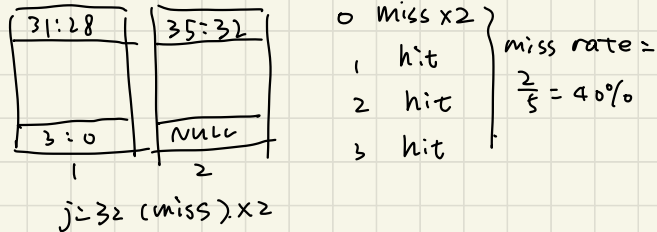 31:28 35:32
3:0 NULL
1 2
j=32 (miss).×2
0 miss×2
1 hit
2 hit
3 hit
miss rate=
2/5 = 40%